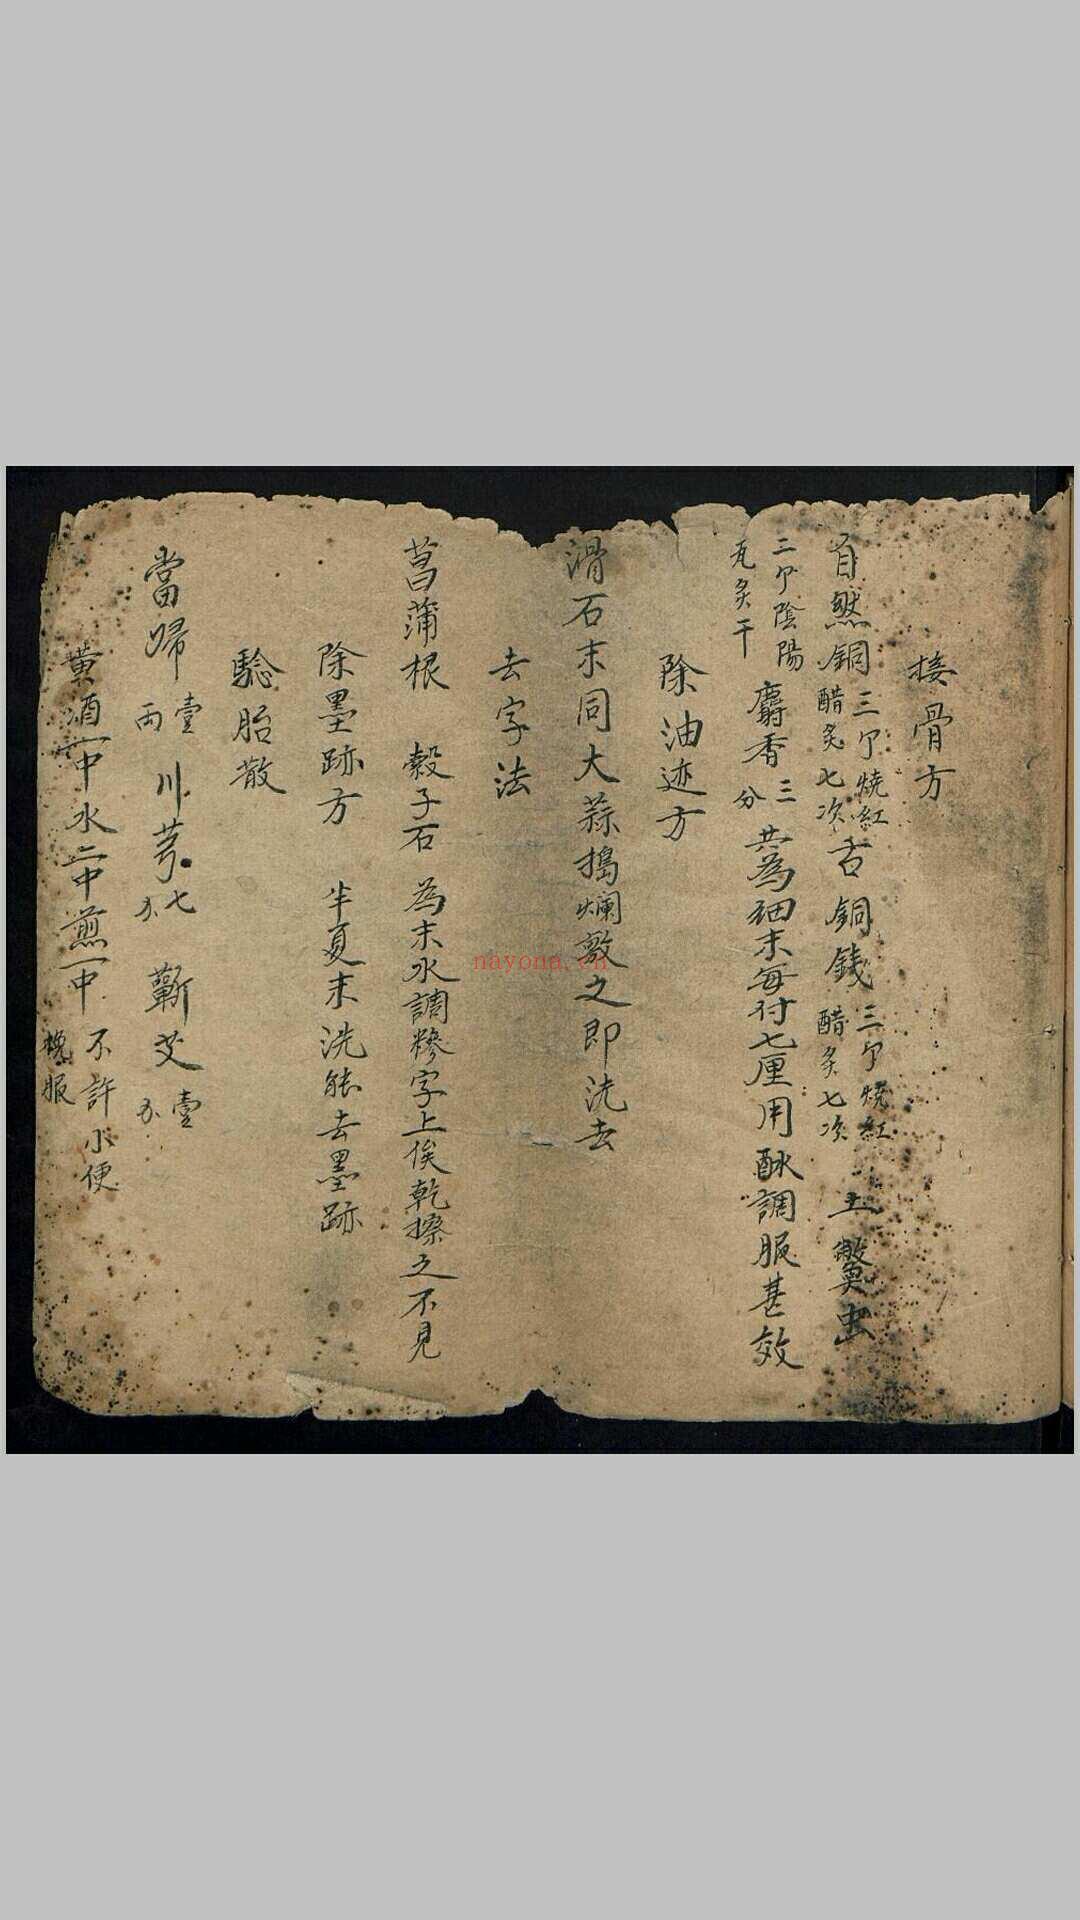 接骨方
自然銅三卩燒紅醋炙七次古銅錢三卩燒紅醋炙七次土鱉虫
三卩陰陽瓦炙干麝香三分共為細末每付七厘用酥調服甚效
除油迹方
滑石末同大蒜搗爛敦之即洗去
去字法
菖蒲根 穀子石 為末水調糝字上俟乾擦之不見
除墨跡方 半夏末洗能去墨跡
驗胎散
當歸壹兩川芎七分蘄艾壹分
黄酒一中水二中煎一中不許小便晚服
nayona.cn